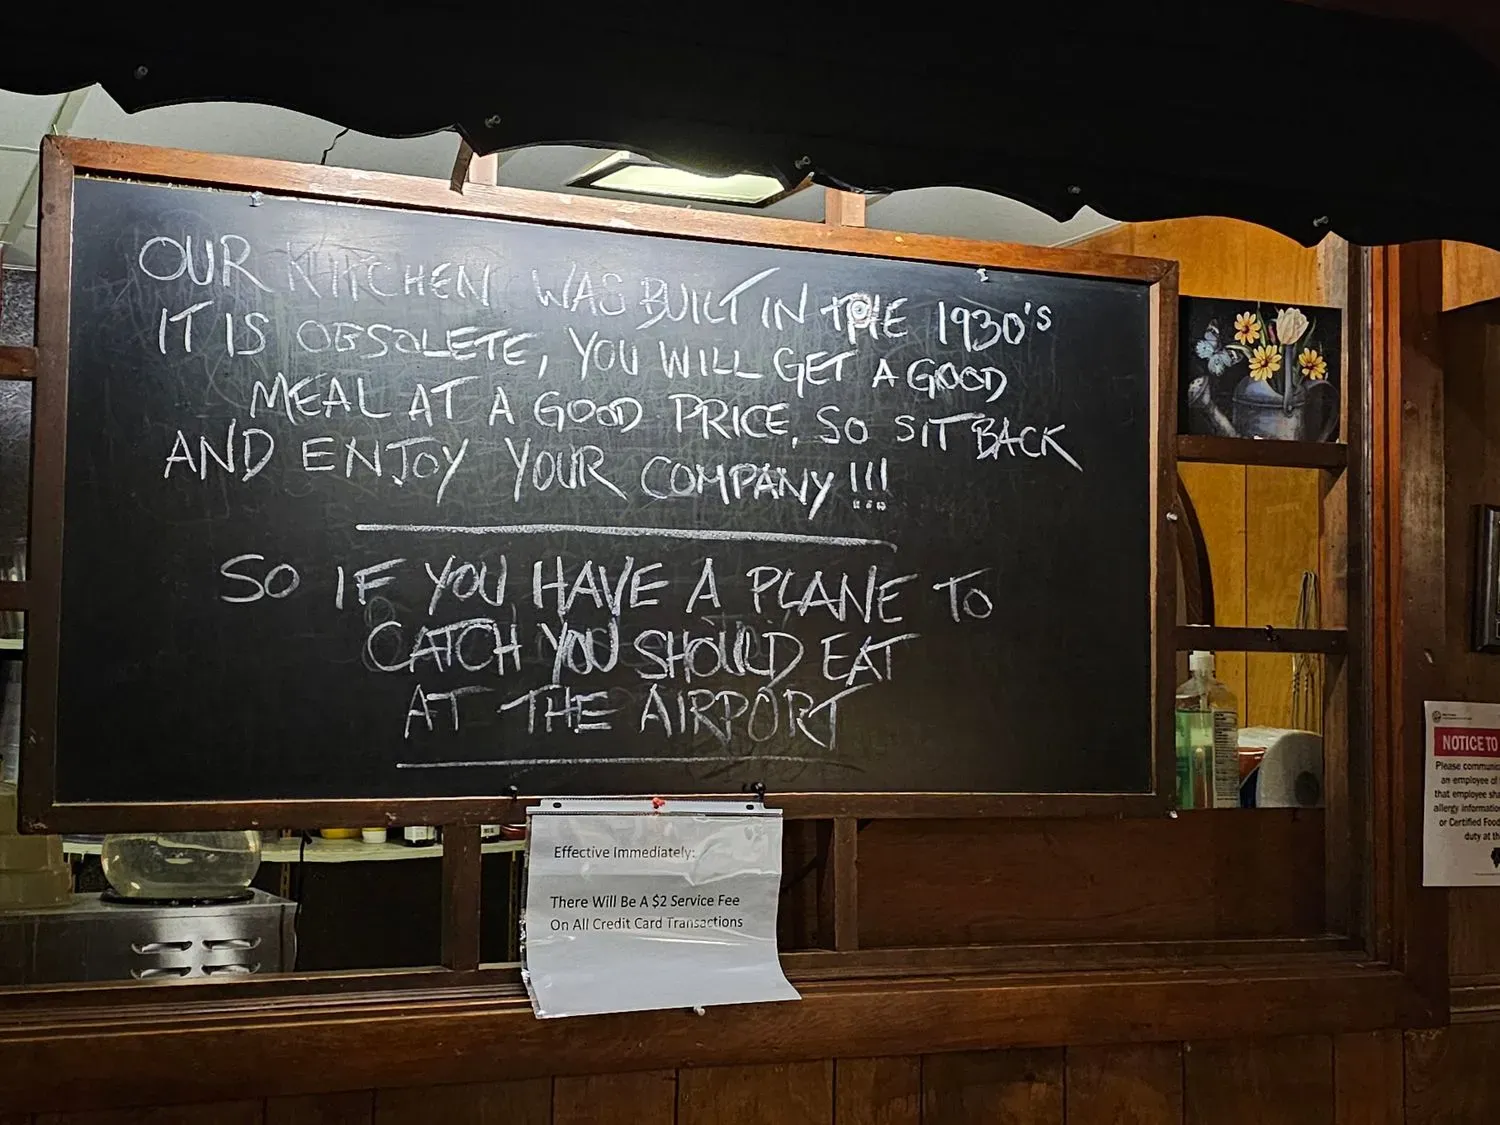 OUR KITCHEN WAS BUILT IN THE 1930'S
IT IS OBSOLETE, YOU WILL GET A GOOD
MEAL AT A GOOD PRICE, SO SIT BACK
AND ENJOY YOUR COMPANY!!!
SO IF YOU HAVE A PLANE TO
CATCH YOU SHOULD EAT
AT THE AIRPORT
Effective Immediately:
There Will Be A $2 Service Fee
On All Credit Card Transactions
NOTICE TO
Please
an employee of
that employee
allergy
or Certified
duty at